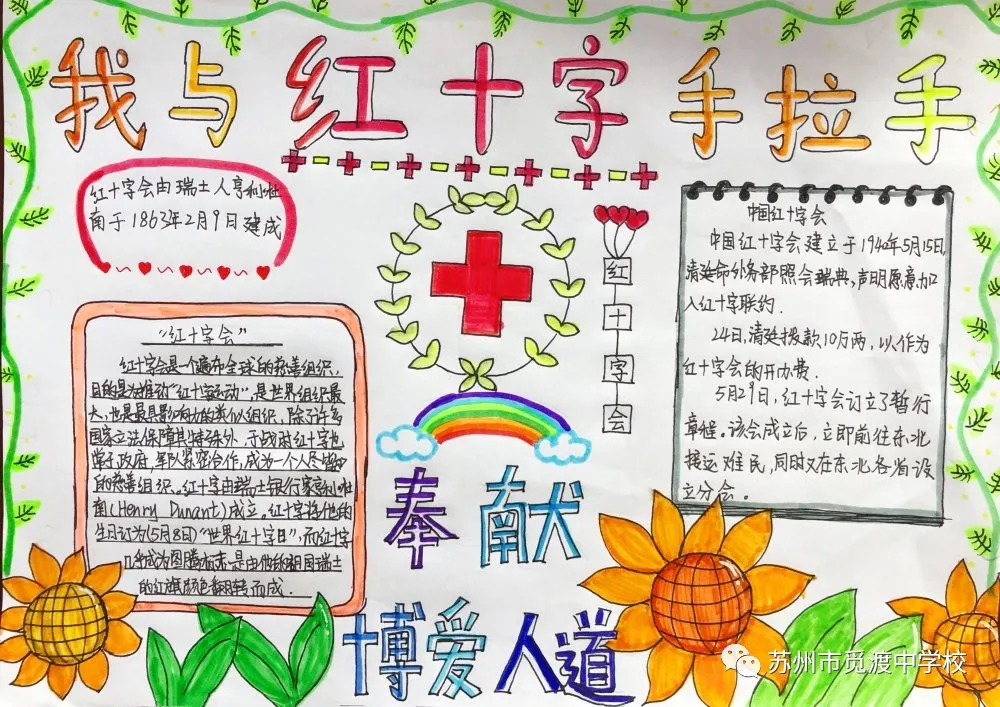 我与红十字手拉手
红十字会由瑞士人亨利杜
南于1863年2月9日建成
红十字会
中国红十字会
中国红十字会建立于1940年5月15日,
清廷命外务部照会瑞典,声明愿意加
入红十字联约.
24日,清廷拨款10万两,以作为
红十字会的开办费.
5月29日,红十字会订立了暂行
章程。该会成立后,立即前往东北
接运难民,同时又在东北各省设
立分会.
“红十字会”
红十字会是一个遍布全球的慈善组织,
目的是为推动“红十字运动”,是世界组织最
大,也是最具影响力的类似组织,除了许多
国家立法保障其特殊外,于战时红十字也
常与政府,军队紧密合作,成为一个人尽皆知
的慈善组织。红十字由瑞士银行家亨利杜
南(Henry Dunant)成立。红十字将他的
生日订为(5月8日)“世界红十字日”,而红十字
成为图腾标志,是由他祖国瑞士
的红旗颜色翻转而成.
奉献
博爱人道
苏州市觅渡中学校